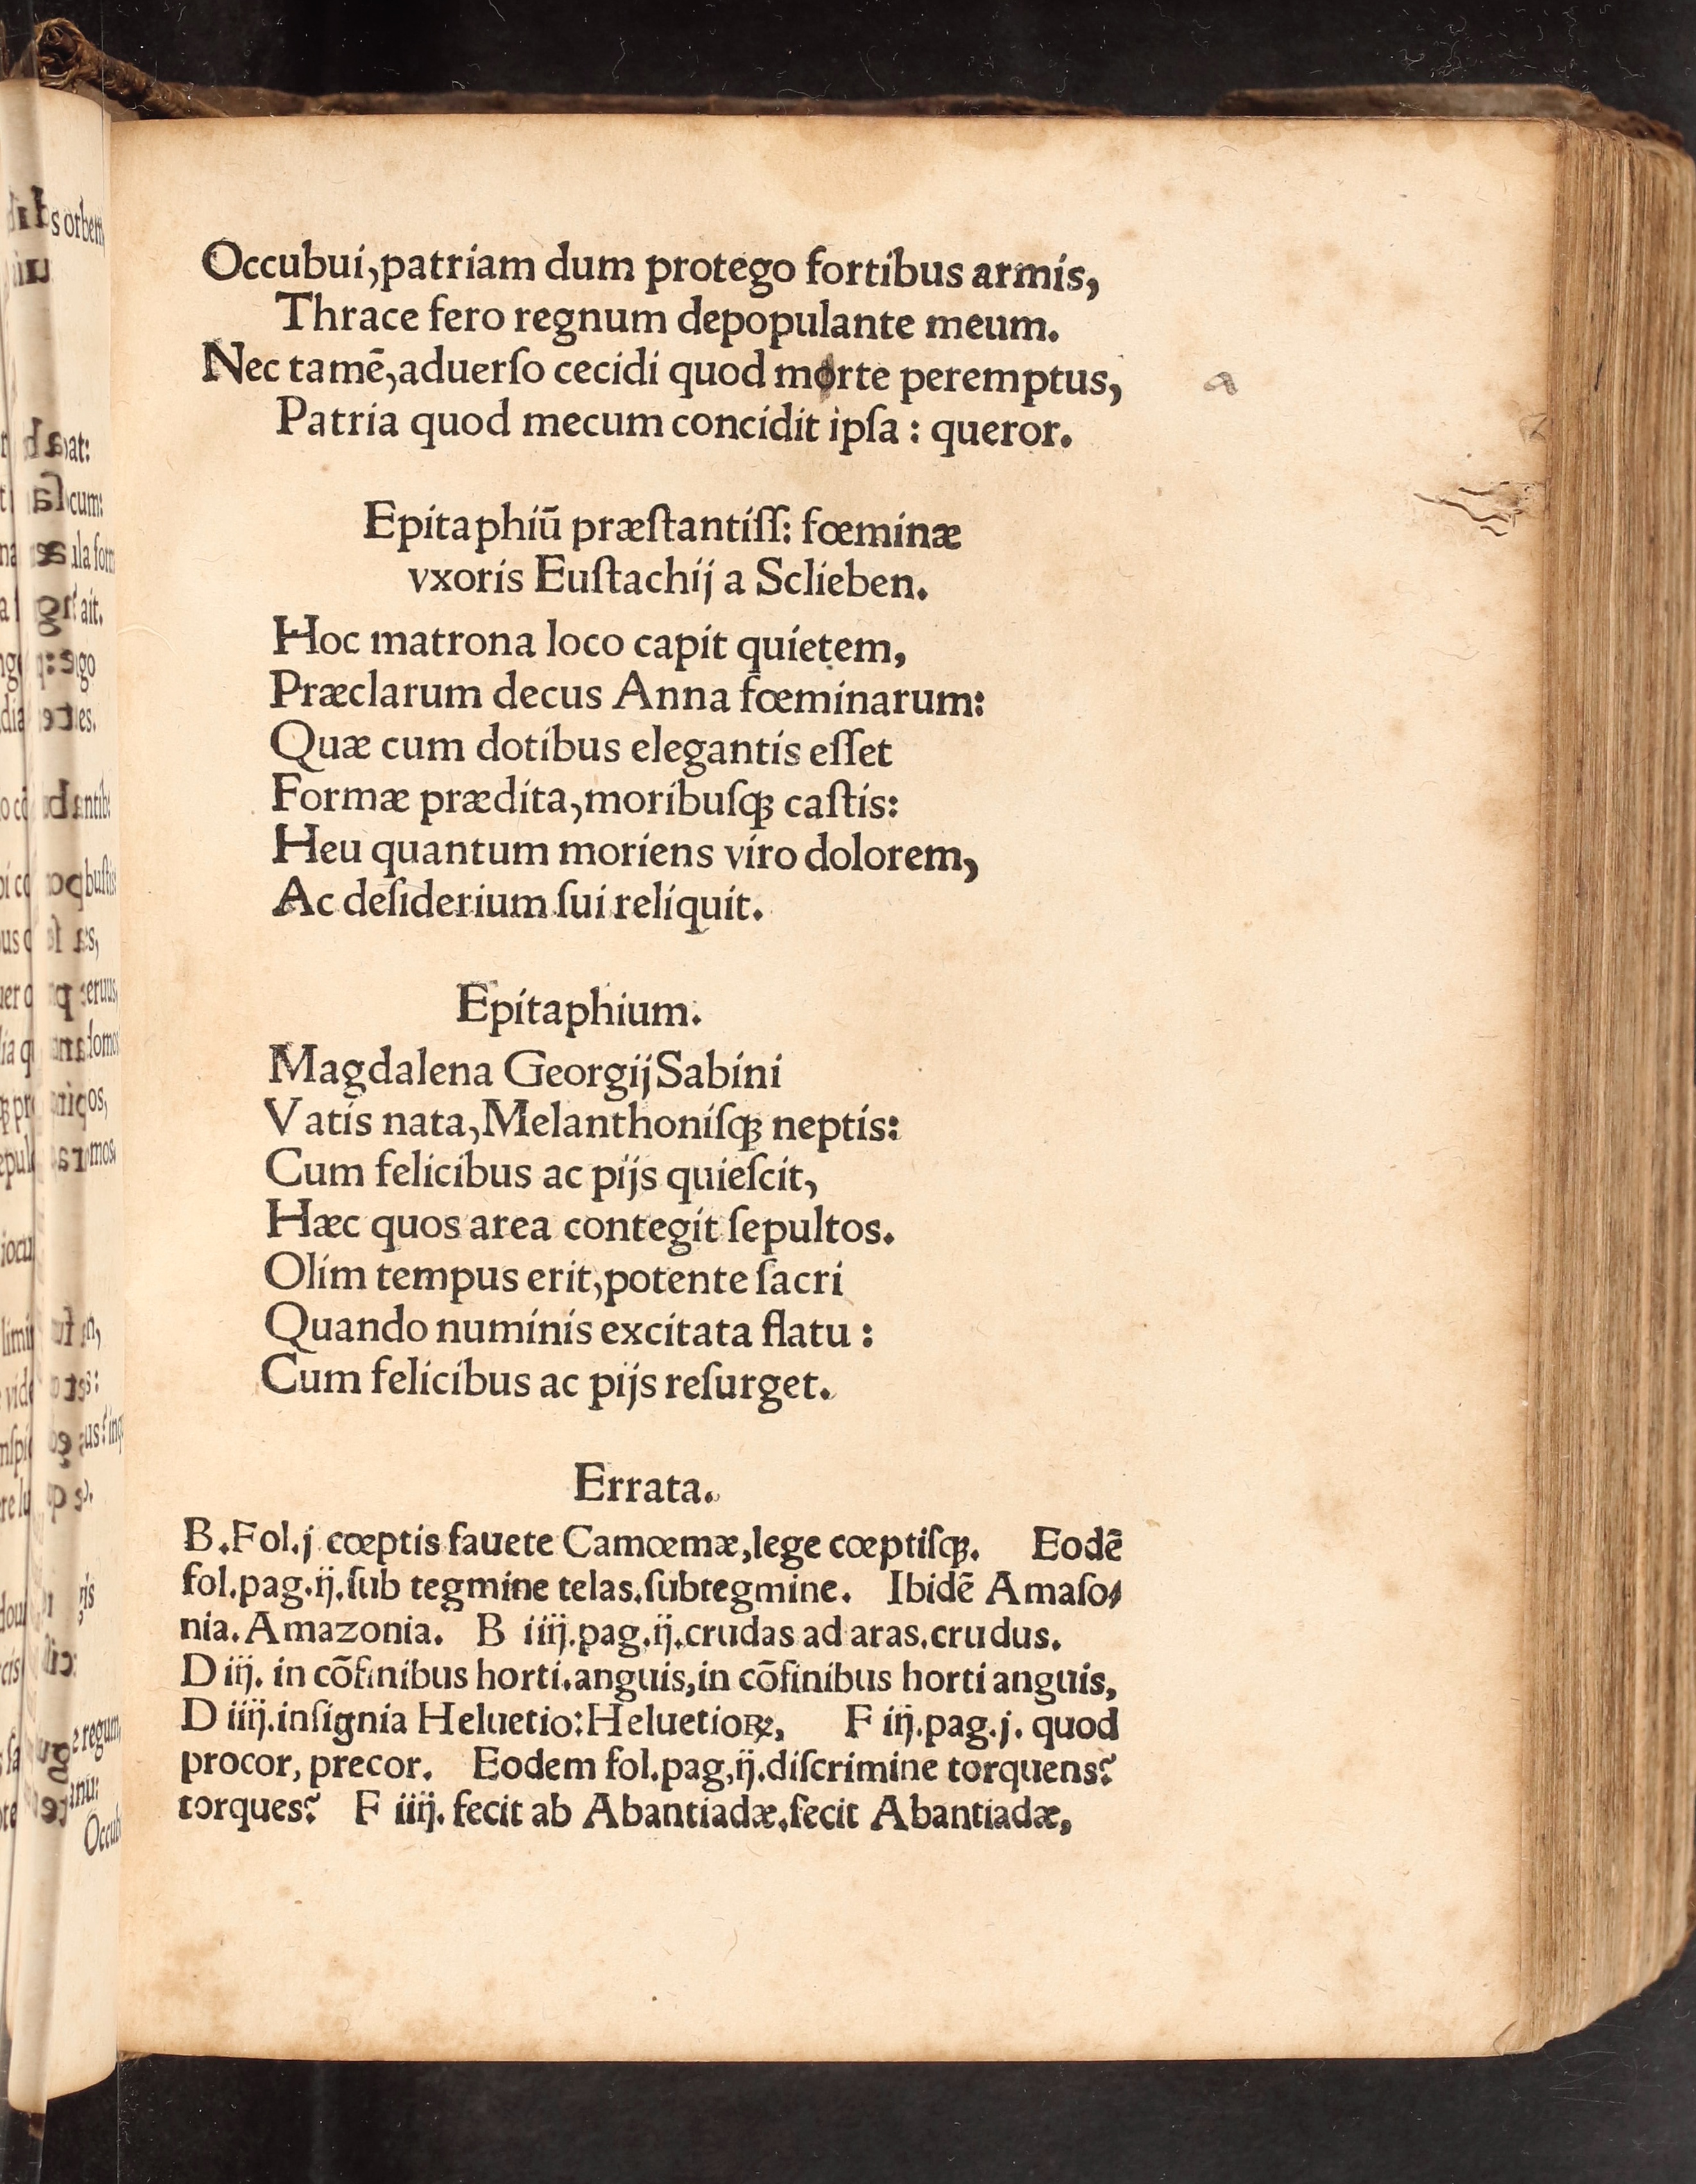 Occubui,patriam dum protego fortibus armis,
Thrace fero regnum depopulante meum.
Nec tamē,aduerſo cecidi quod morte peremptus,
a
Patria quod mecum concidit ipſa : queror.
Epitaphiū præſtantiſſ: fœminæ
vxoris Euſtachij a Sclieben.
Hoc matrona loco capit quietem,
Præclarum decus Anna fœminarum:
Quæ cum dotibus elegantis eſſet
Formæ prædita,moribuſqꝫ caſtis:
Heu quantum moriens viro dolorem,
Ac deſiderium ſui reliquit.
Epitaphium.
Magdalena Georgij Sabini
Vatis nata,Melanthoniſqꝫ neptis:
Cum felicibus ac pijs quieſcit,
Hæc quos area contegit ſepultos.
Olim tempus erit,potente ſacri
Quando numinis excitata flatu :
Cum felicibus ac pijs reſurget.
Errata.
B.Fol.j cœptis fauete Camœmæ,lege cœptiſqꝫ. Eodē
fol.pag.ij.ſub tegmine telas.ſubtegmine. Ibidē Amaſo⸗
nia.Amazonia. B iiij.pag.ij.crudas ad aras.crudus.
D iij. in cōfinibus horti.anguis,in cōfinibus horti anguis,
D iiij.inſignia Heluetio:Heluetioꝝ, F iij.pag.j. quod
procor, precor. Eodem fol.pag,ij.diſcrimine torquens?
torques? F iiij. fecit ab Abantiadæ.fecit Abantiadæ,